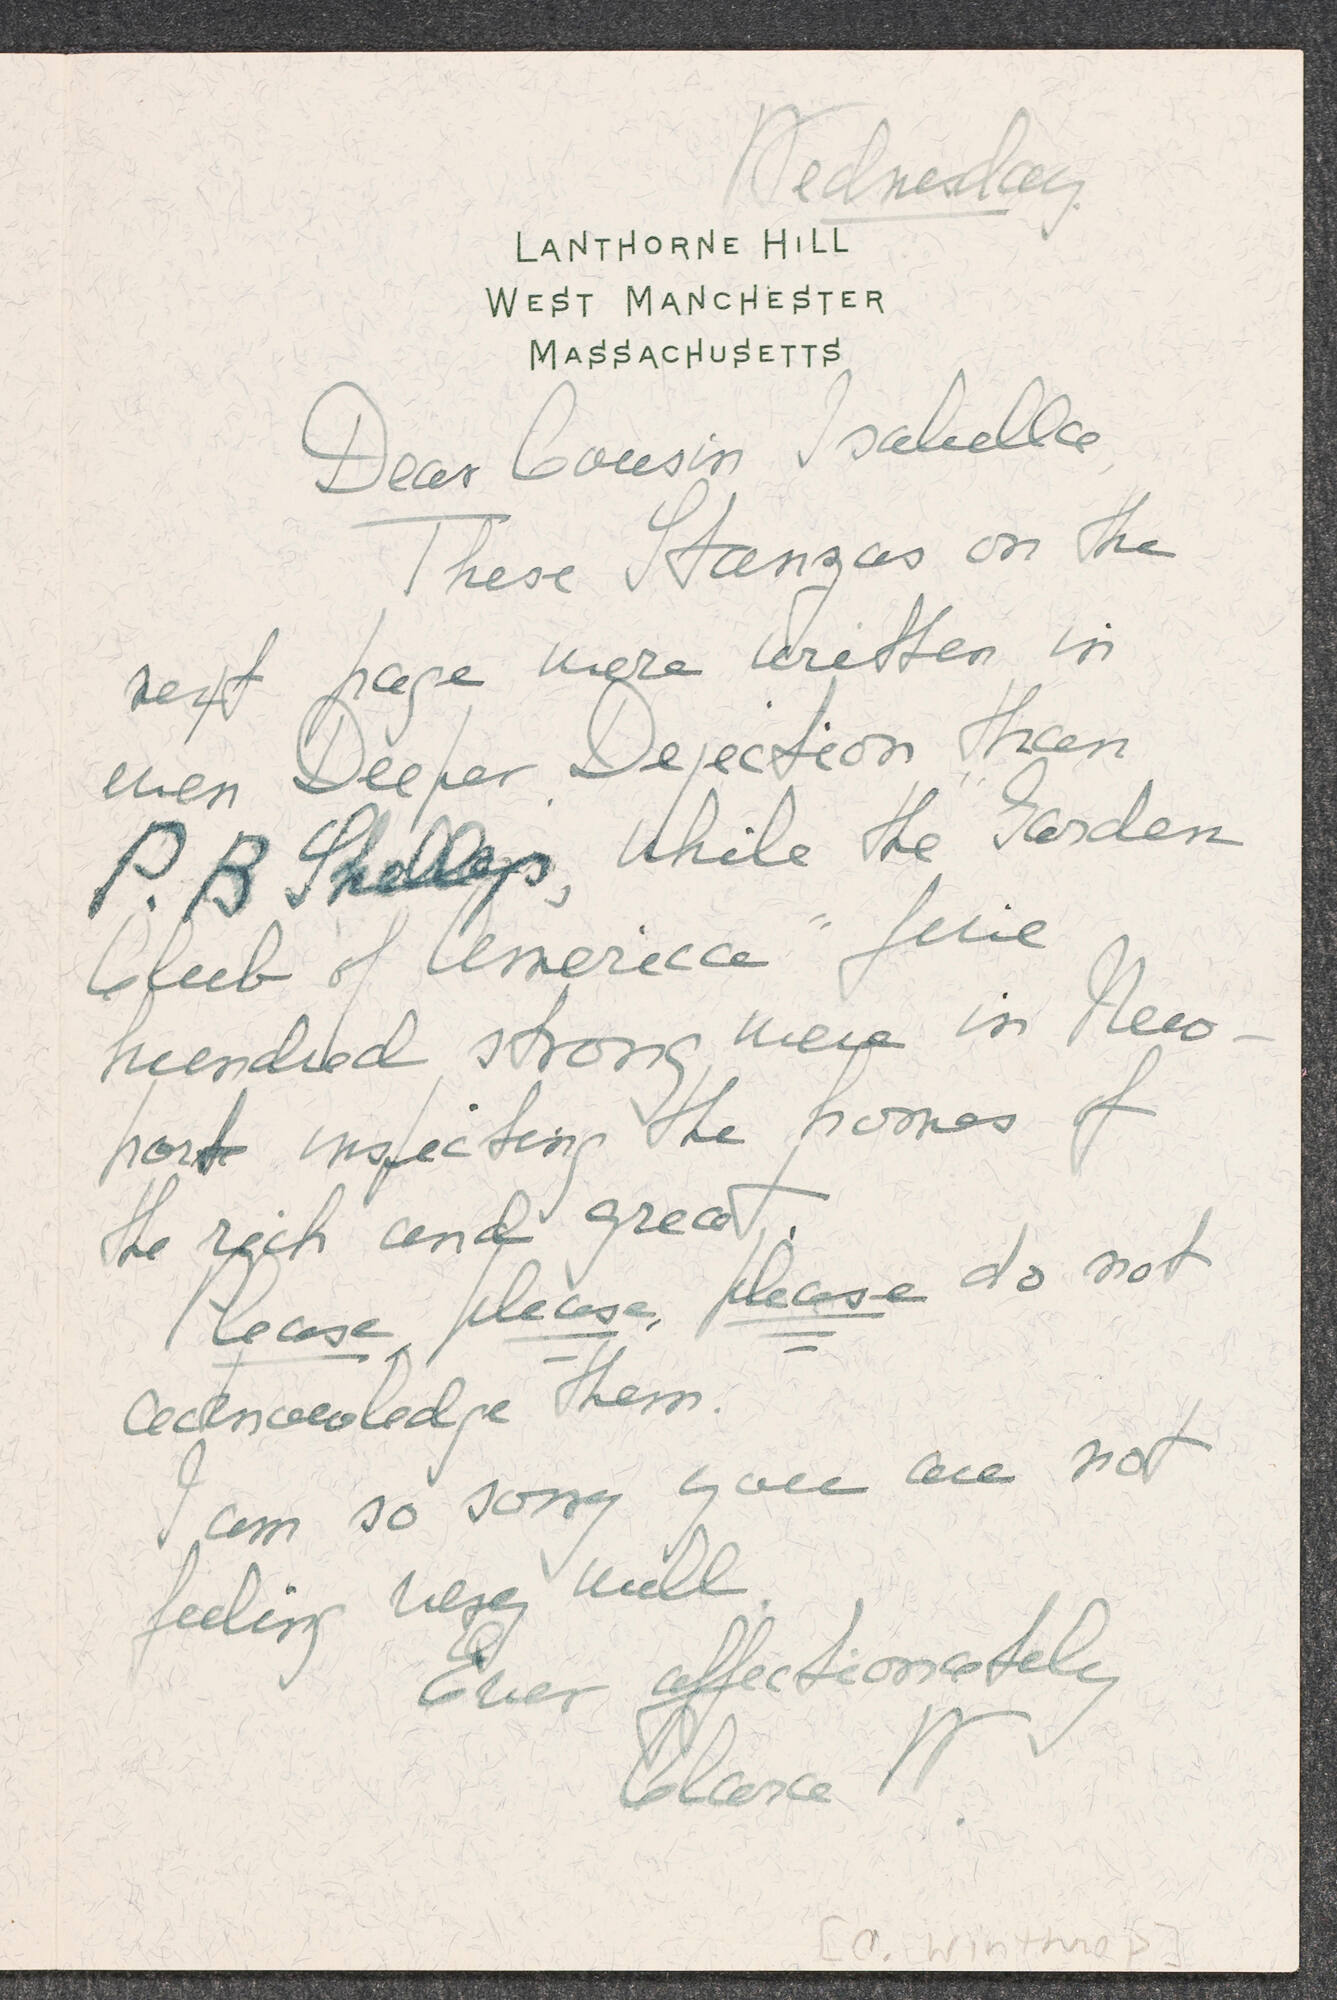 Wednesday.
LANTHORNE HILL
WEST MANCHESTER
MASSACHUSETTS
Dear Cousin Isabella,
These Stanzas on the
next page were written in
even Deeper Dejection than
P. B Shelleys, while the "Garden
Club of America" five
hundred strong were in New-
port inspecting the homes of
the rich and great.
Please, please, please do not
acknowledge them.
I am so sorry you are not
feeling very well.
Ever affectionately
Clara W.
[C. Winthrop]